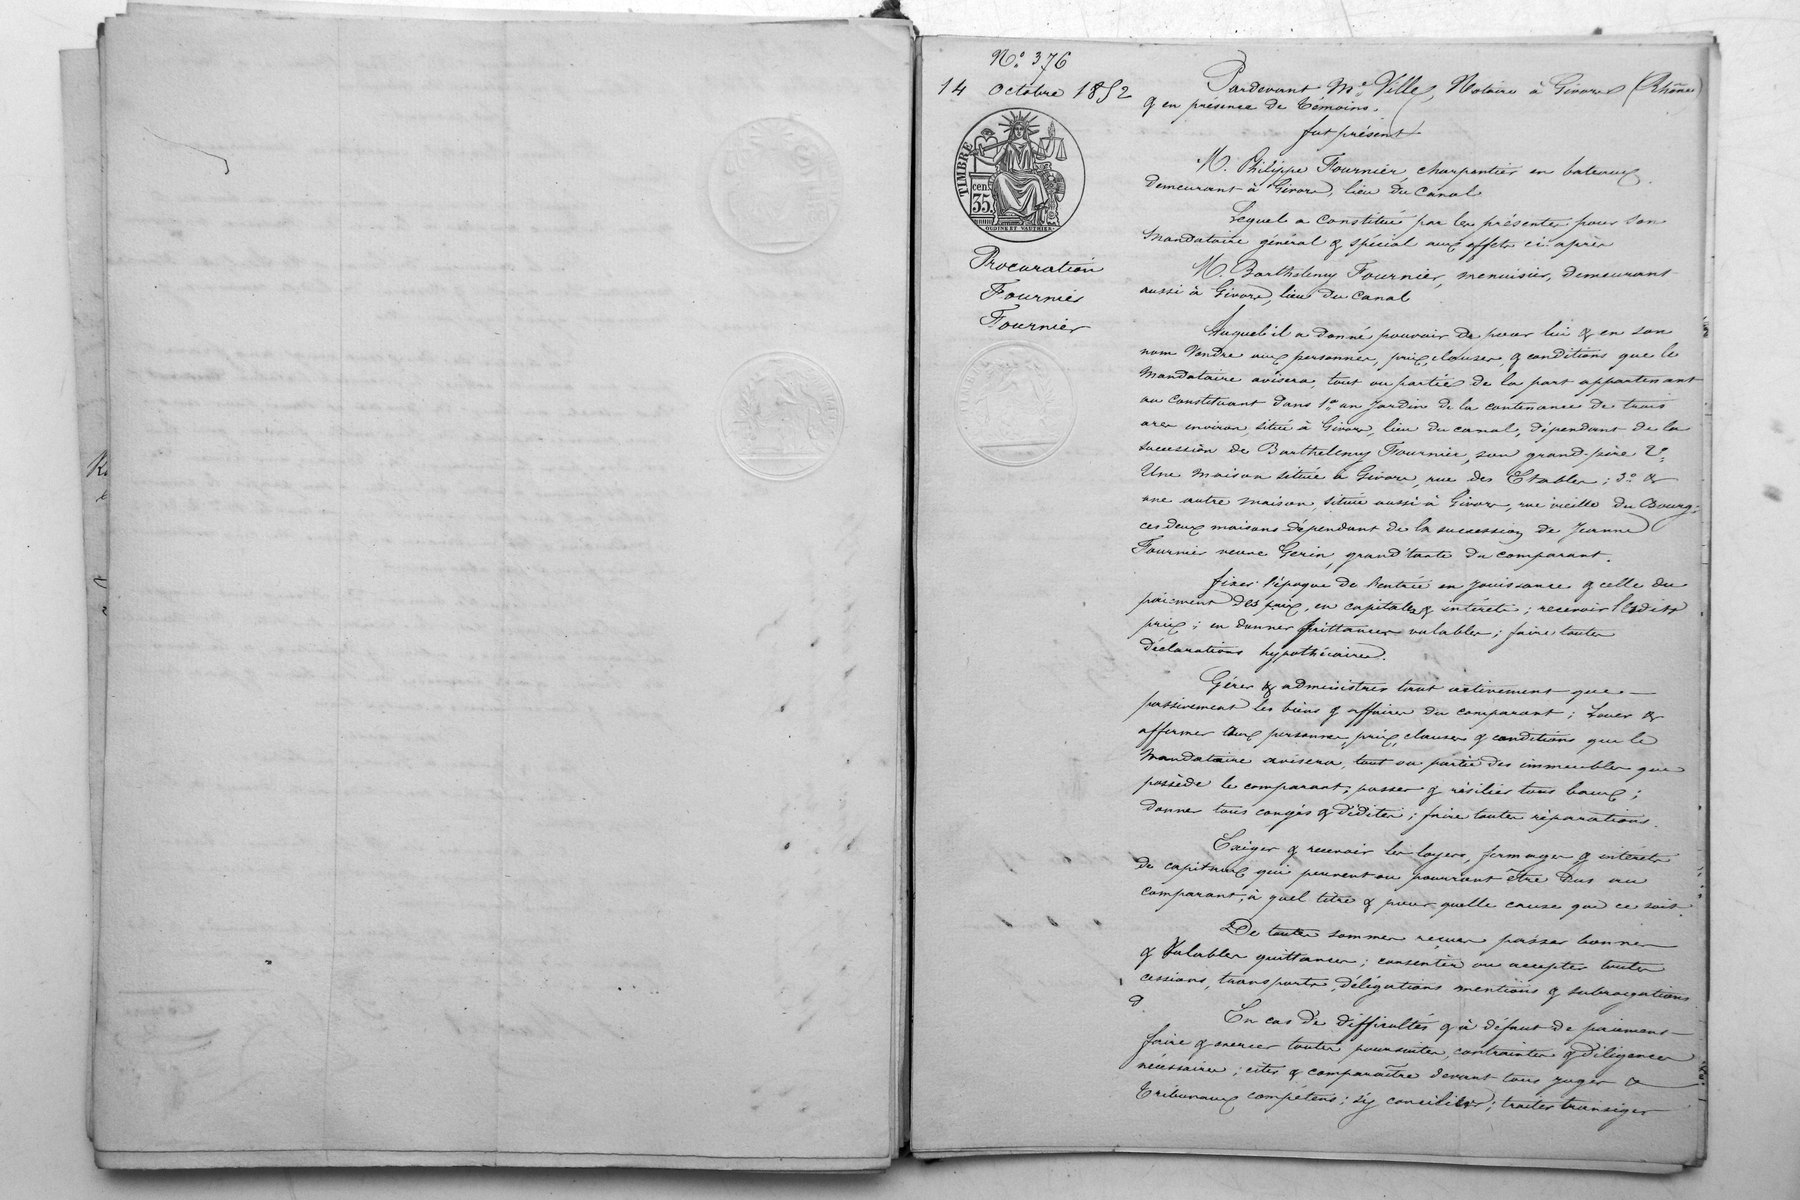 N.° 376
14 Octobre 1852
TIMBRE
35 cen.
OUDINÉ ET VAUTHIER
Procuration
Fournier
Fournier
Pardevant Me Ville, Notaire à Givors (Rhône)
& en présence de témoins,
fut présent
M. Philippe Fournier, charpentier en bateaux
demeurant à Givors, lieu du canal
Lequel a constitué par les présentes pour son
Mandataire général & spécial aux effets ci après
M. Barthelemy Fournier, menuisier, demeurant
aussi à Givors, lieu du canal
Auquel il a donné pouvoir de pour lui & en son
nom Vendre aux personnes, prix, clauses, & conditions que le
Mandataire avisera, tout ou partie de la part appartenant
au constituant dans 1.° un Jardin de la contenance de trois
ares environ, situé à Givors, lieu du canal, dépendant de la
succession de Barthelemy Fournier, son grand-père 2.°
Une maison située à Givors, rue des Etables; 3.° &
une autre maison située aussi à Givors, rue vieille du Bourg;
ces deux maisons dépendant de la succession de Jeanne
Fournier veuve Gerin, grand'tante du comparant.
fixer l'époque de l'entrée en jouissance & celle du
paiement des prix, en capitales & intérêts; recevoir lesdits
prix; en donner quittances valables; faire toutes
déclarations hypothécaires.
Gérer & administrer tant activement que
passivement les biens & affaires du comparant; Louer &
affermer aux personnes, prix, clauses & conditions que le
Mandataire avisera, tout ou partie des immeubles que
possède le comparant, passer & résilier tous baux;
donner tous congés & dédites; faire toutes réparations.
Exiger & recevoir les loyers, fermages & intérêts
de capitaux qui peuvent ou pourront être dus au
comparant, à quel titre & pour quelle cause que ce soit.
De toutes sommes reçues passer bonnes
& Valables quittances; consentir ou accepter toutes
cessions, transports, délégations mentions & subrogations
En cas de difficultés & à défaut de paiement
faire & exercer toutes poursuites, contraintes & diligences
nécessaires; citer & comparaître devant tous juges &
Tribunaux compétens; s'y concilier; traiter transiger